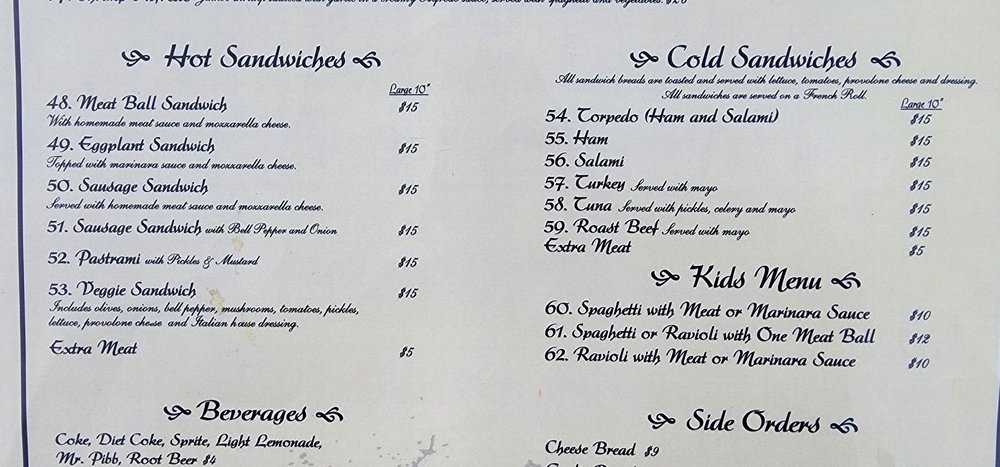 served with spaghetti and vegetables. $26
Hot Sandwiches
Large 10"
48. Meat Ball Sandwich $15
With homemade meat sauce and mozzarella cheese.
49. Eggplant Sandwich $15
Topped with marinara sauce and mozzarella cheese.
50. Sausage Sandwich $15
Served with homemade meat sauce and mozzarella cheese.
51. Sausage Sandwich with Bell Pepper and Onion $15
52. Pastrami with Pickles & Mustard $15
53. Veggie Sandwich $15
Includes olives, onions, bell pepper, mushrooms, tomatoes, pickles,
lettuce, provolone cheese and Italian house dressing.
Extra Meat $5
Beverages
Coke, Diet Coke, Sprite, Light Lemonade,
Mr. Pibb, Root Beer $4
Cold Sandwiches
All sandwich breads are toasted and served with lettuce, tomatoes, provolone cheese and dressing.
All sandwiches are served on a French Roll.
Large 10"
54. Torpedo (Ham and Salami) $15
55. Ham $15
56. Salami $15
57. Turkey Served with mayo $15
58. Tuna Served with pickles, celery and mayo $15
59. Roast Beef Served with mayo $15
Extra Meat $5
Kids Menu
60. Spaghetti with Meat or Marinara Sauce $10
61. Spaghetti or Ravioli with One Meat Ball $12
62. Ravioli with Meat or Marinara Sauce $10
Side Orders
Cheese Bread $9